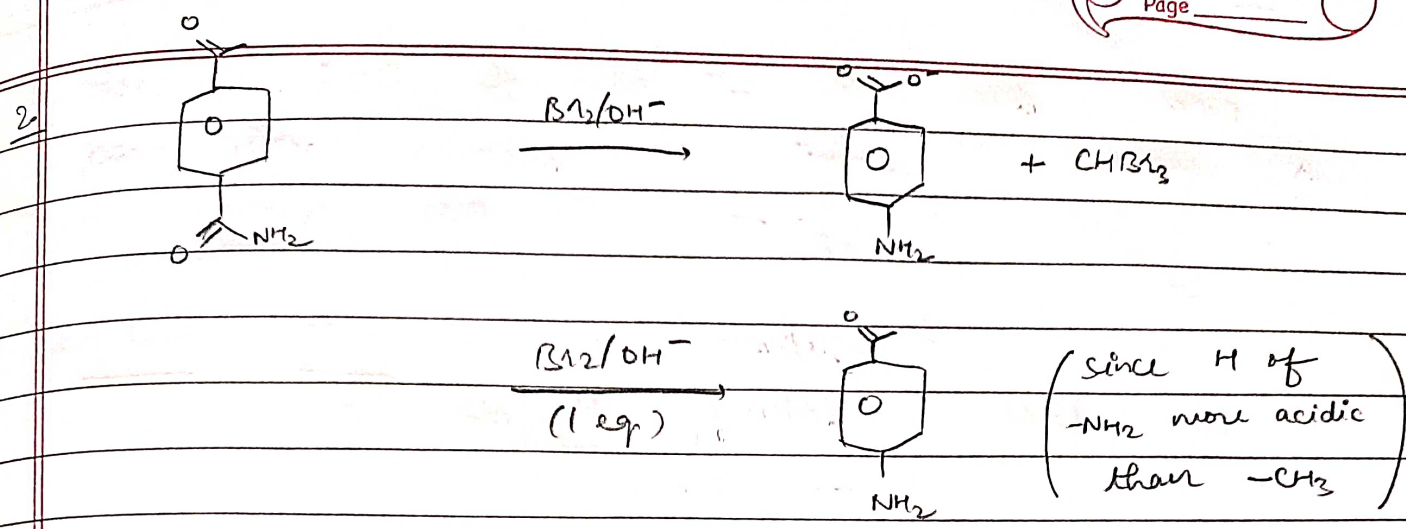 Page
2.
O
O
NH2
Br2/OH⁻
O
O
O⁻
NH2
+ CHBr3
Br2/OH⁻
(1 eq.)
O
O
NH2
(since H of
-NH2 more acidic
than -CH3)
O